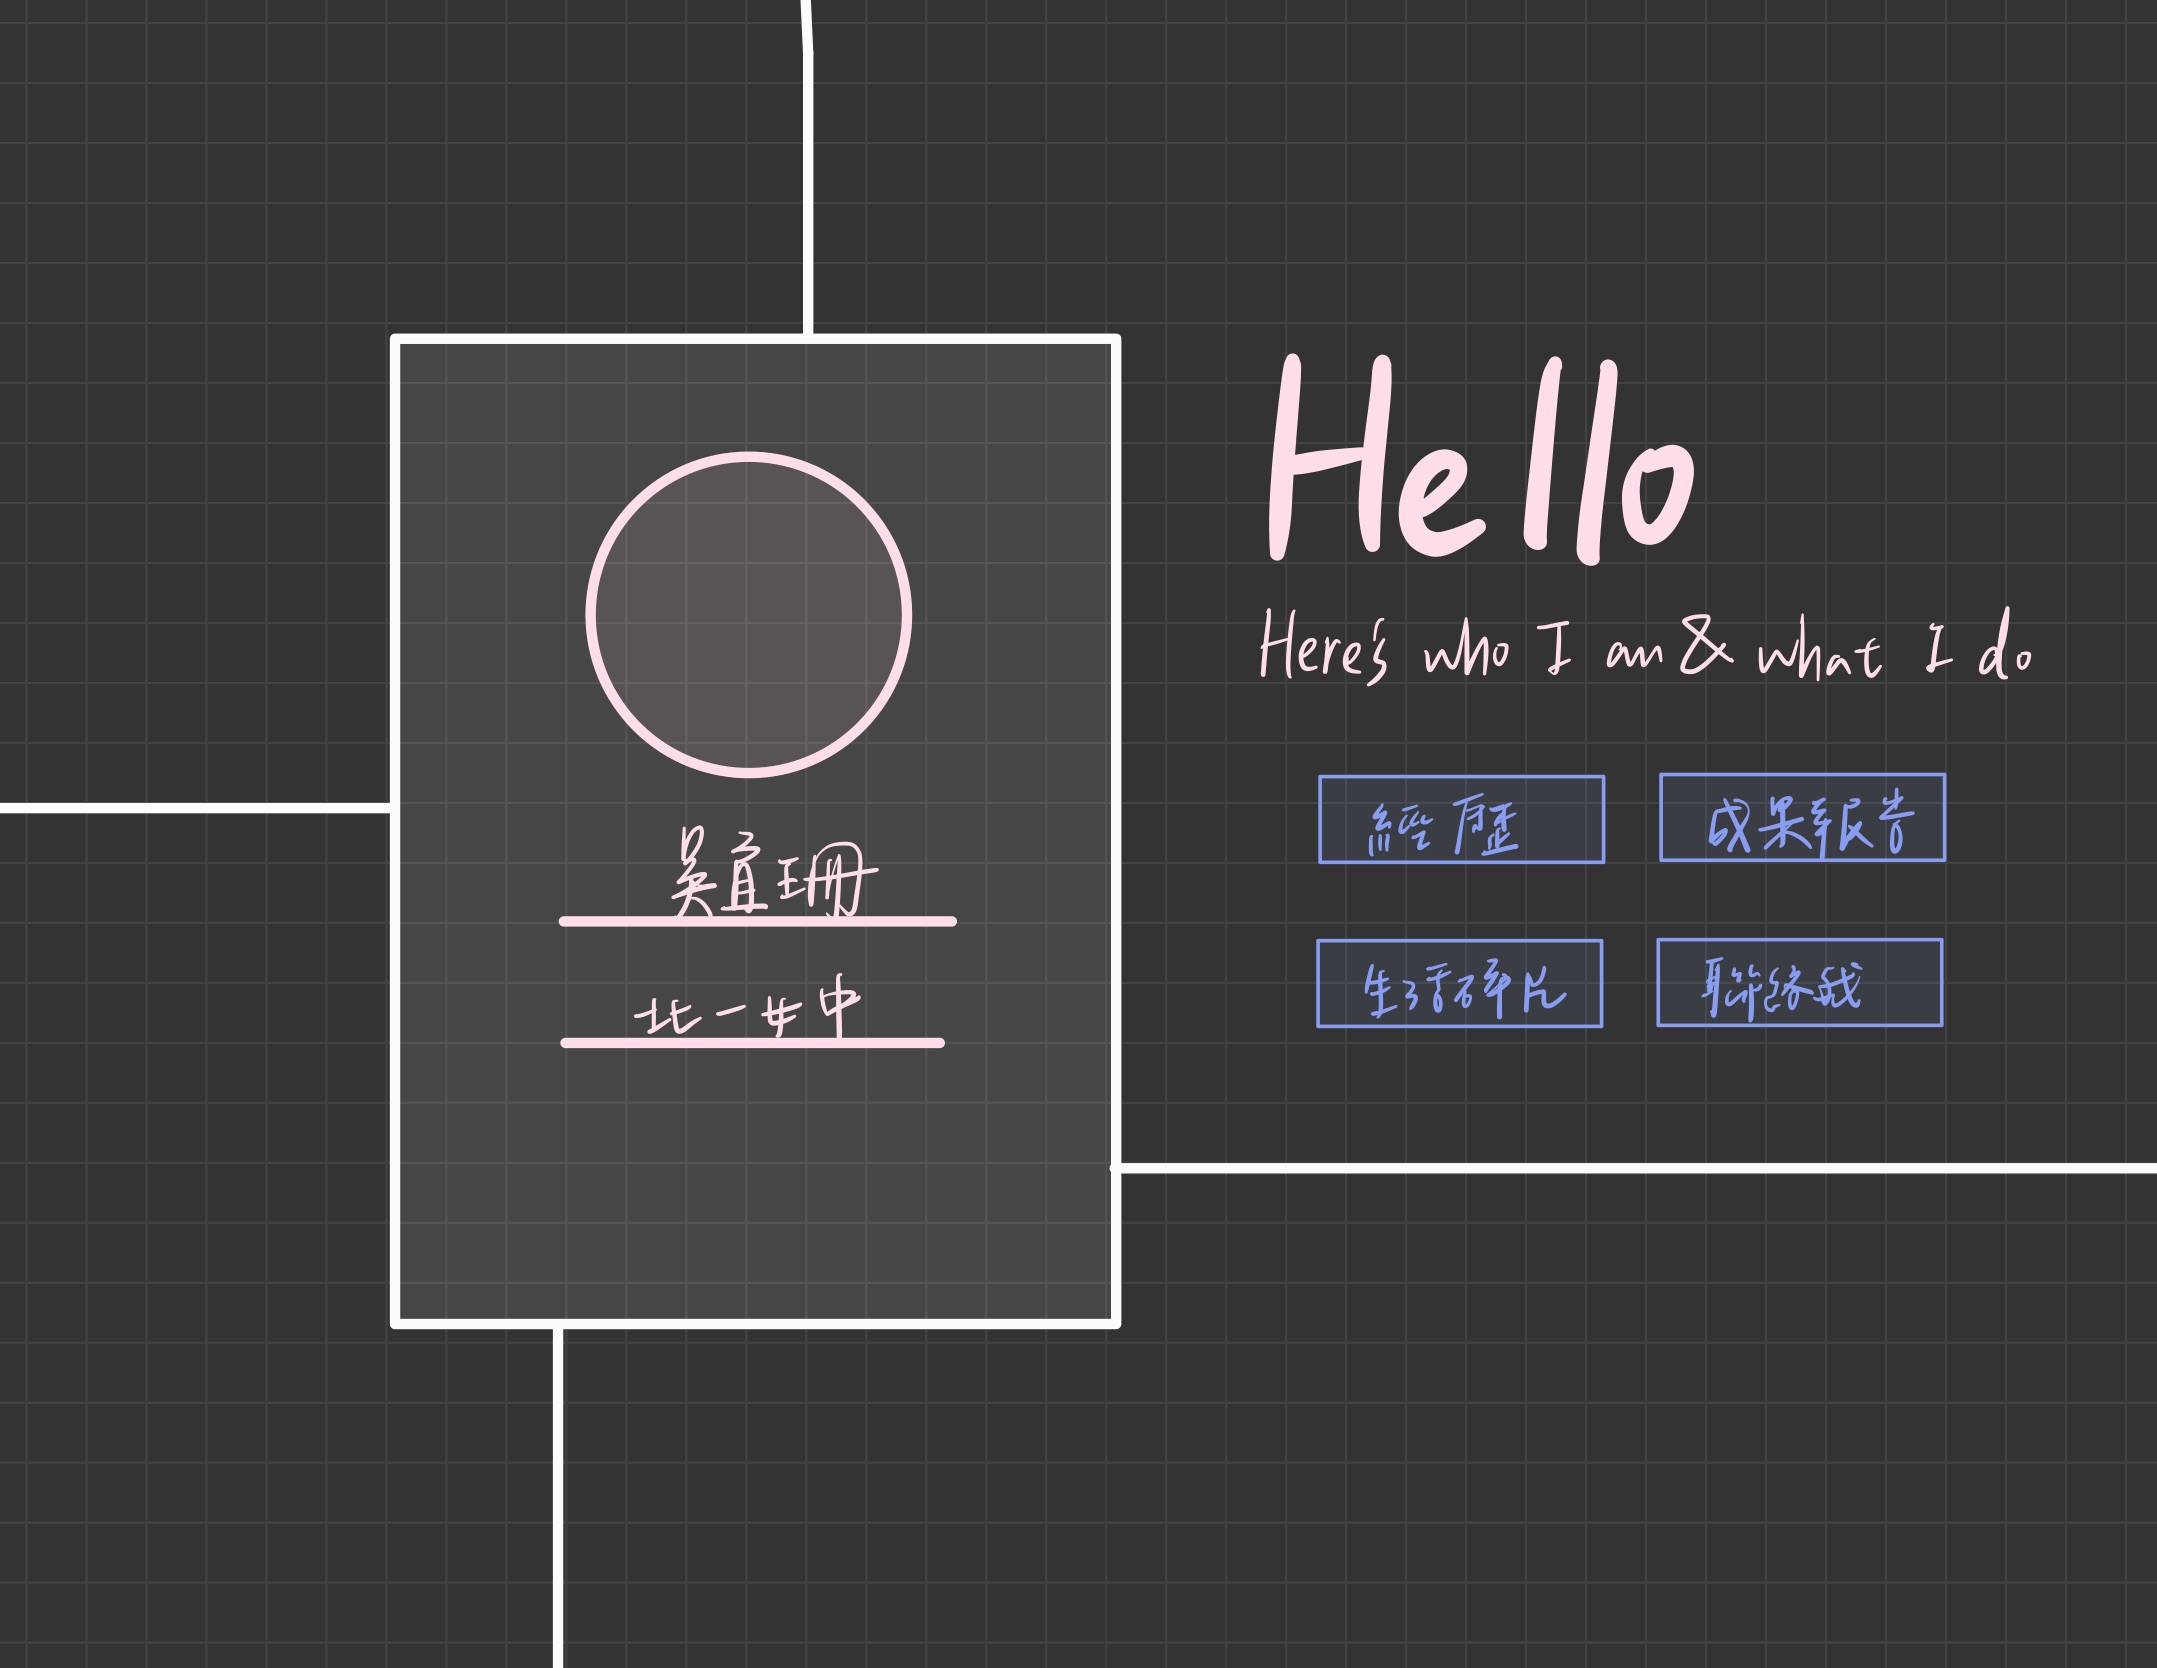 吳宜珊
北一女中
Hello
Here's who I am & what I do
經歷
成果報告
生活碎片
聯絡我